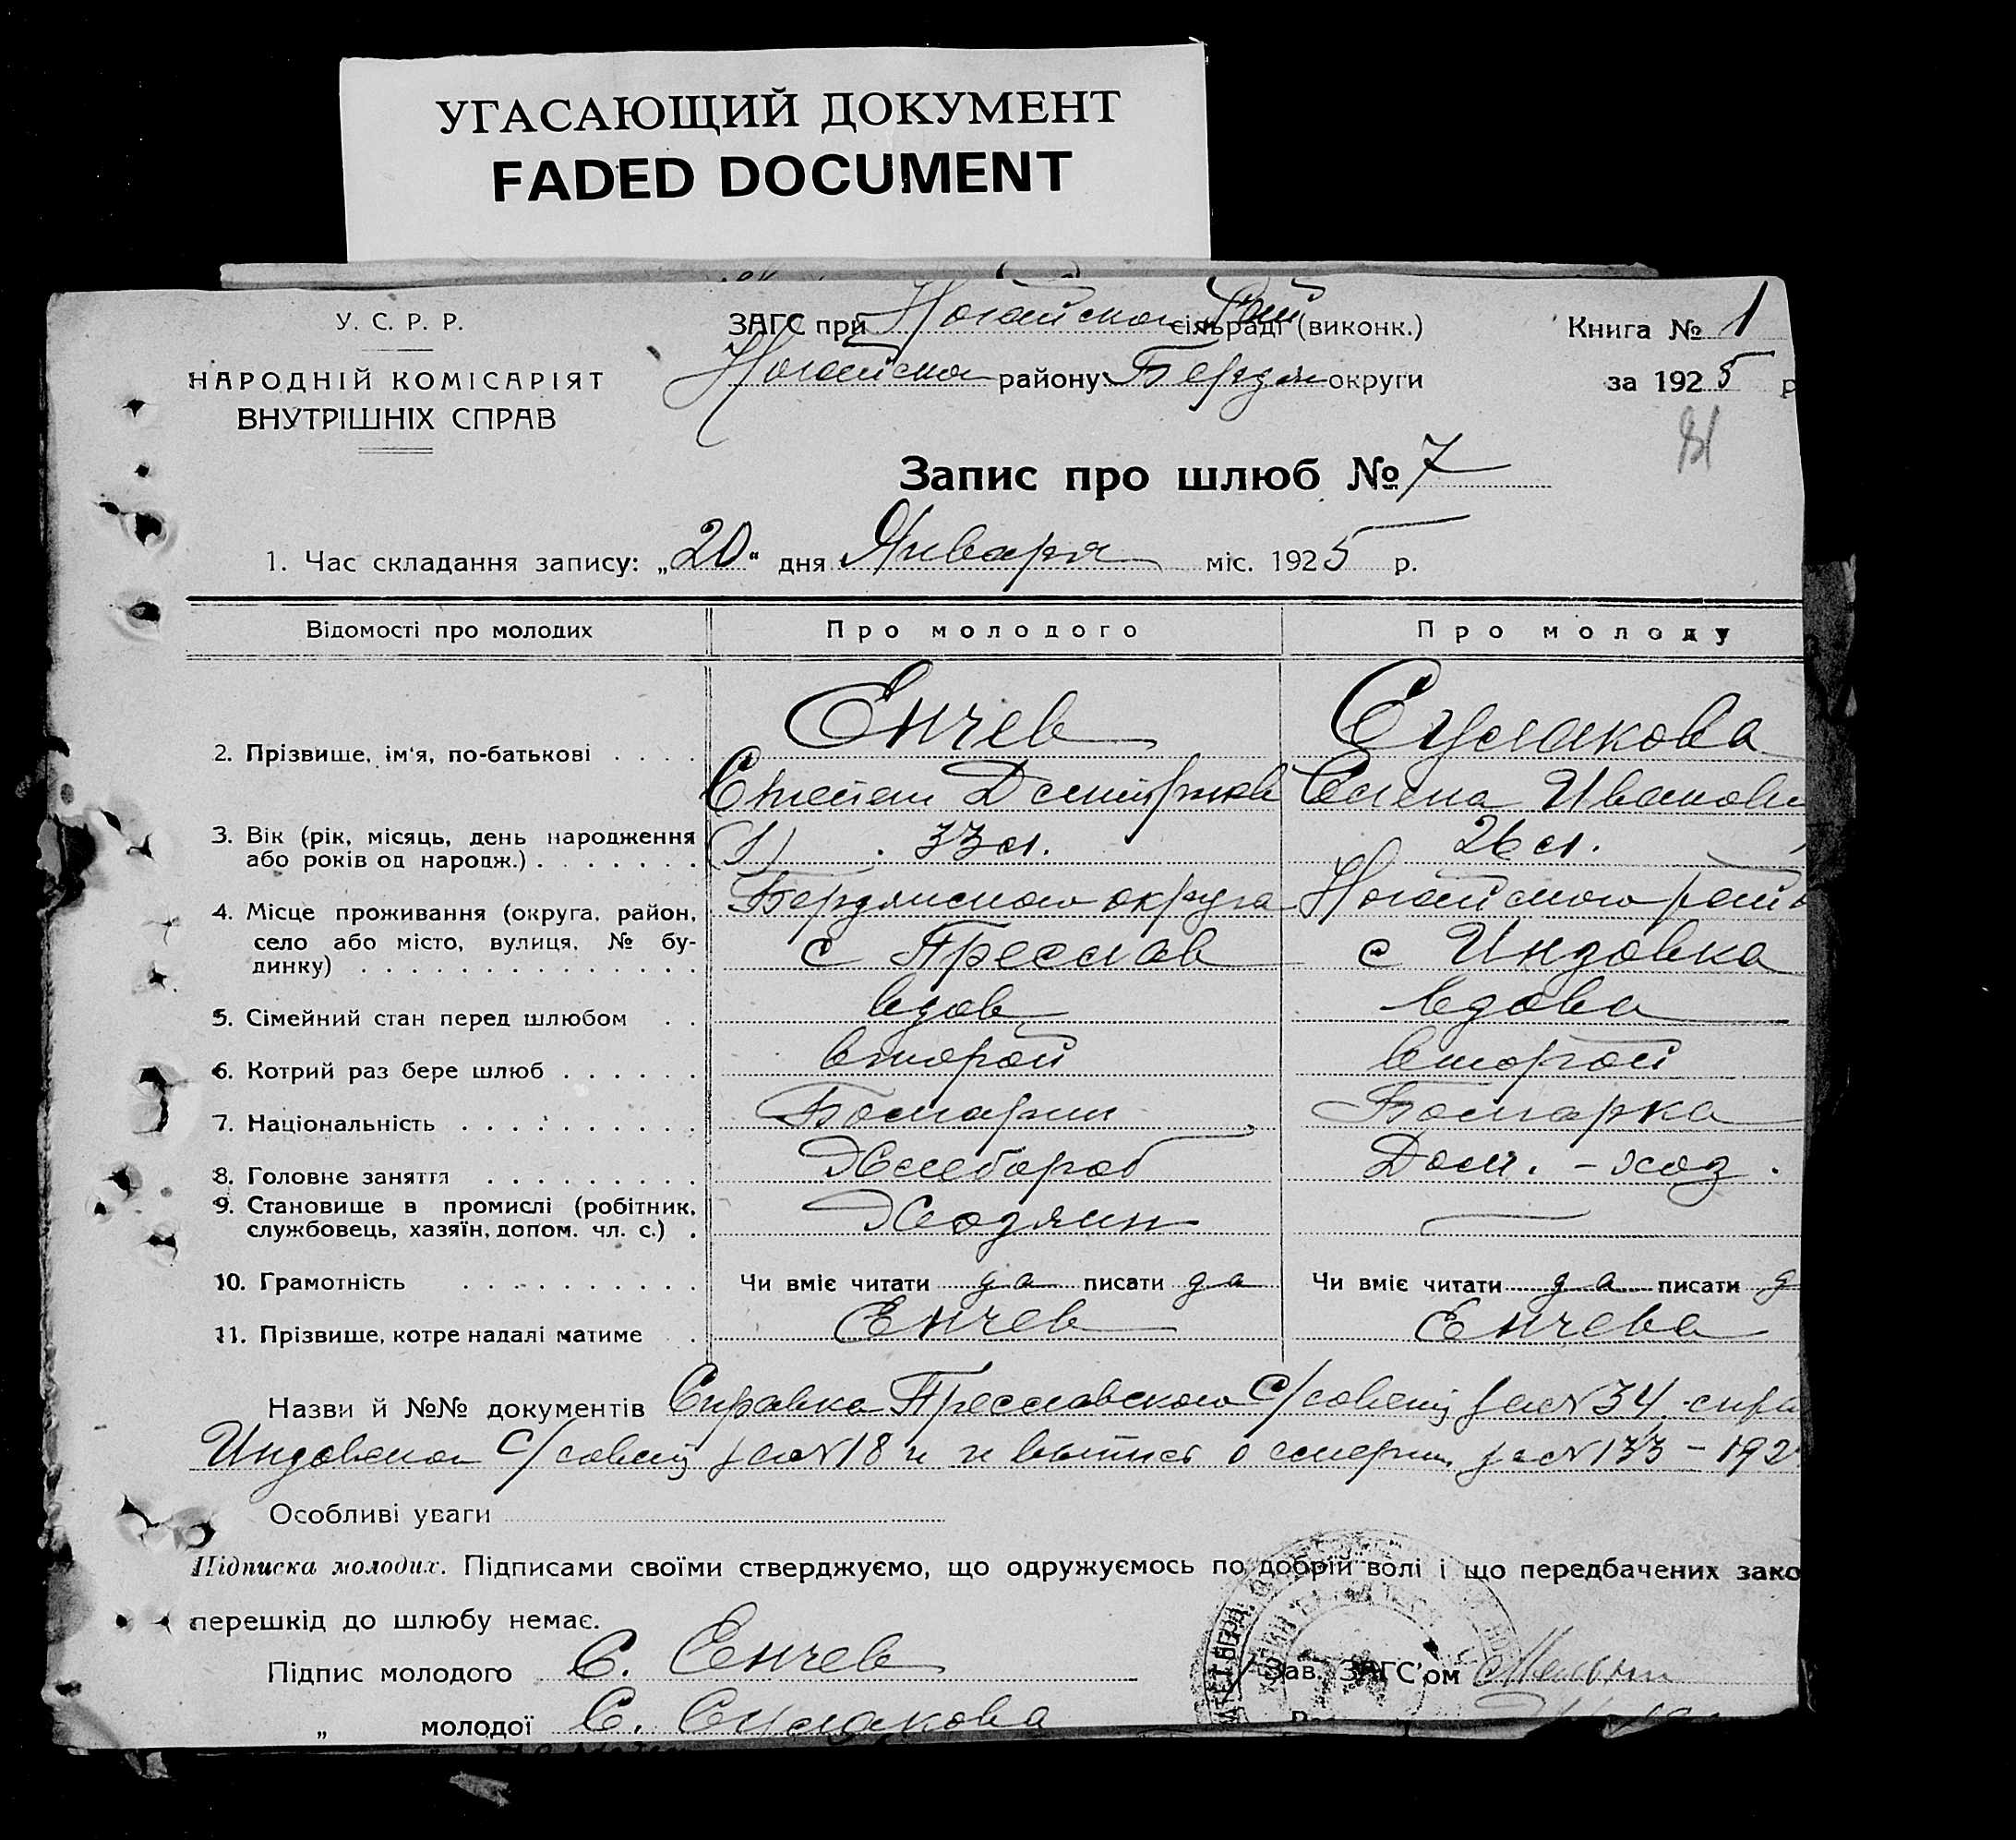 УГАСАЮЩИЙ ДОКУМЕНТ
FADED DOCUMENT
У. С. Р. Р.
НАРОДНІЙ КОМІСАРІЯТ
ВНУТРІШНІХ СПРАВ
ЗАГС при Ногайском Рай сільраді (виконк.)
Ногайском району Бердян округи
Книга № 1
за 1925 р
Запис про шлюб № 7
1. Час складання запису: „20“ дня Января міс. 1925 р.
Відомості про молодих Про молодого Про молоду
2. Прізвище, ім'я, по-батькові . . . . Енчев
Степан Дмитриев Елена Иванови
3. Вік (рік, місяць, день народження
або років од народж.) . . . . . . . 33 л. 26 л.
4. Місце проживання (округа, район, Бердянского округа Ногайского рай
село або місто, вулиця, № бу-
динку) . . . . . . . . . . . . . . с Преслав с Индовка
5. Сімейний стан перед шлюбом . . вдов вдова
6. Котрий раз бере шлюб . . . . . . второй второй
7. Національність . . . . . . . . . . Болгарин Болгарка
8. Головне заняття . . . . . . . . . Хлебороб Дом. - хоз.
9. Становище в промислі (робітник,
службовець, хазяїн, допом. чл. с.) . Хозяин —
10. Грамотність . . . . . . . . . . Чи вміє читати да писати да Чи вміє читати да писати д
11. Прізвище, котре надалі матиме . Енчев Енчева
Назви й №№ документів Справка Преславского С/совета за № 34 спра
Индовского С/совета за № 18 и выпись о смерти за № 133 - 192
Особливі уваги
Підписка молодих. Підписами своїми стверджуємо, що одружуємось по добрій волі і що передбачених зако
перешкід до шлюбу немає.
Підпис молодого С. Енчев
Зав. ЗАГС'ом
„ молодої Е.